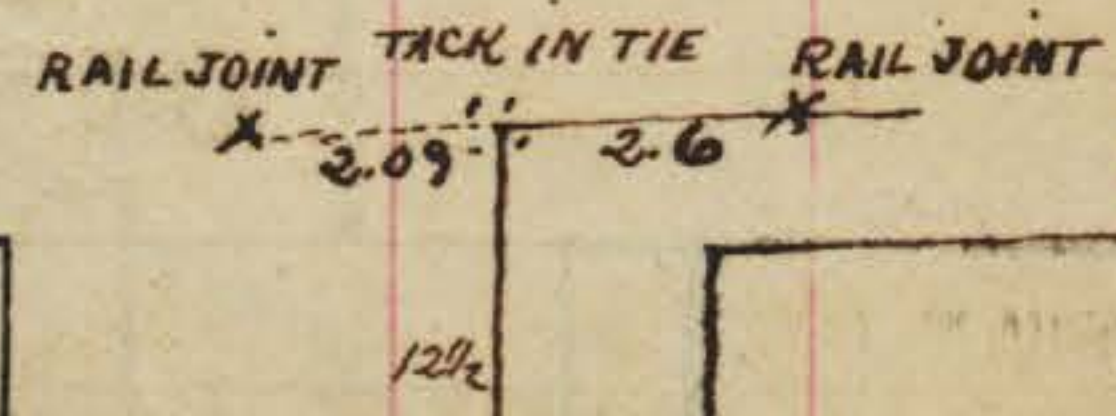 RAIL JOINT TACK IN TIE RAIL JOINT
2.09 2.6
12½